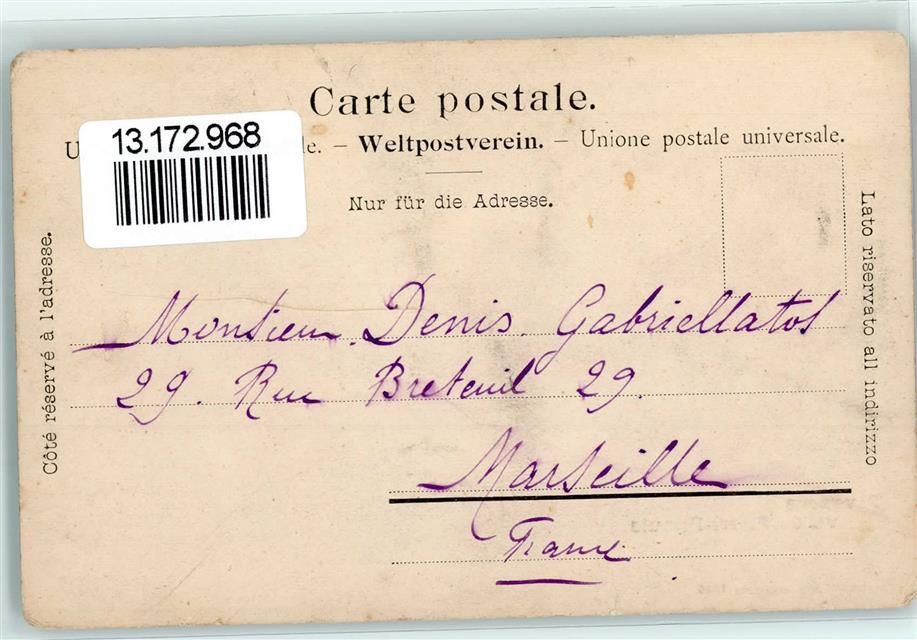 Carte postale.
13.172.968
U le. – Weltpostverein. – Unione postale universale.
Nur für die Adresse.
Côté réservé à l'adresse.
Lato riservato all indirizzo
Monsieur. Denis. Gabriellatos
29. Rue Breteuil 29.
Marseille
France